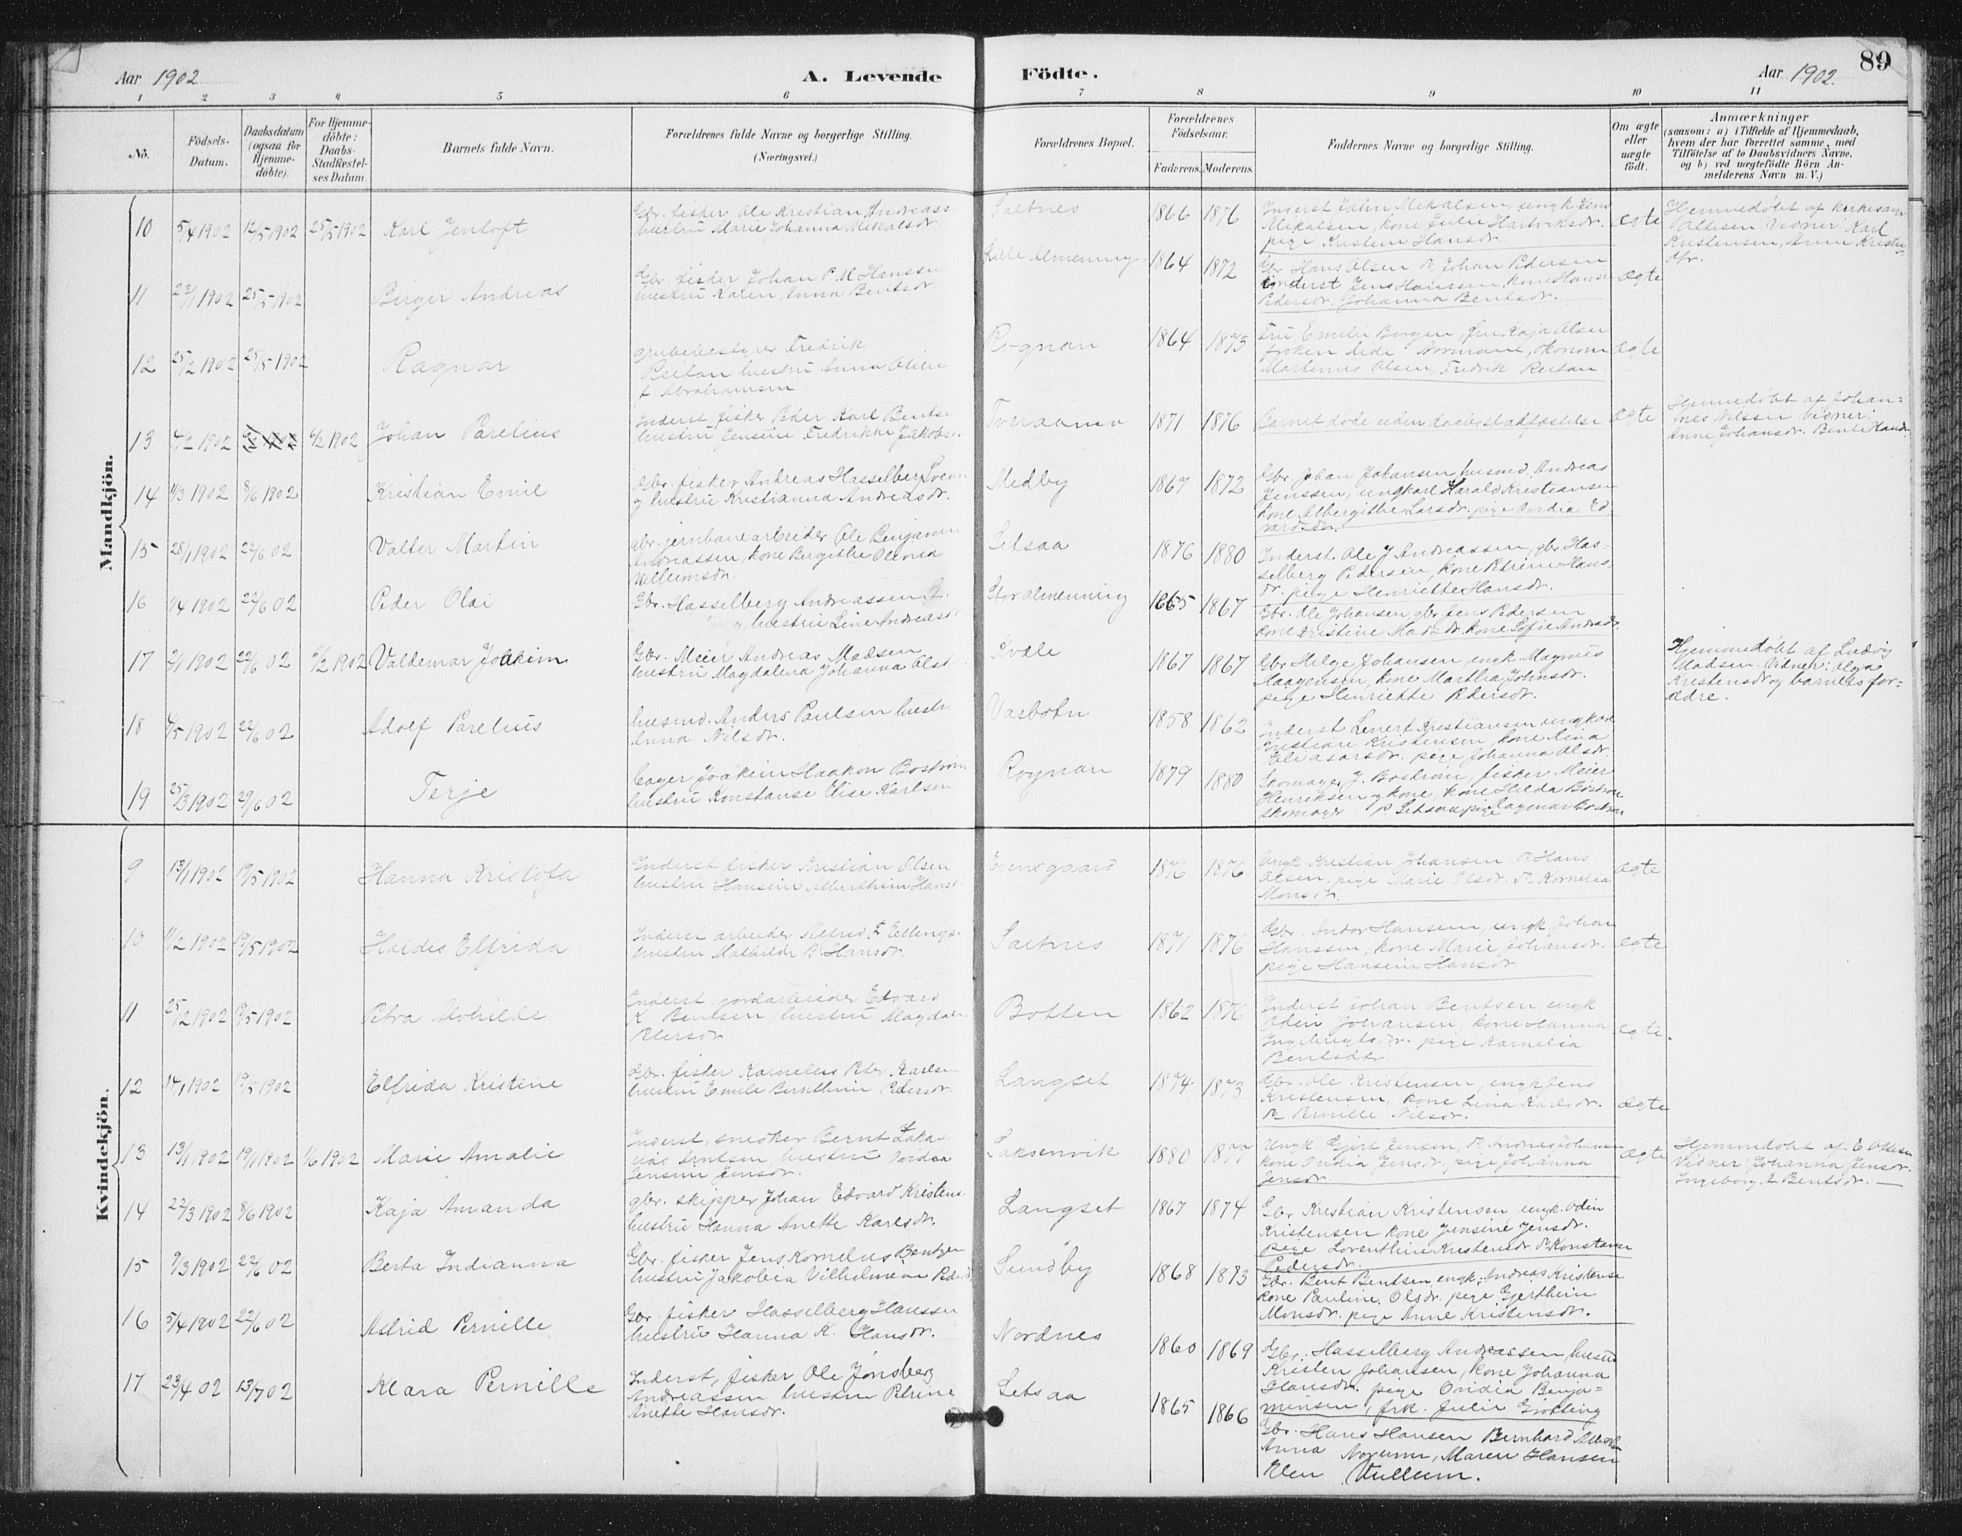 Aar 1902
A. Levende
Födte.
Aar 1902.
89
1 2 3 4 5 6 7 8 9 10 11
No.
Födsels-Datum.
Daabsdatum (ogsaa for Hjemme-döbte).
For Hjemme-döbte: Daabs-Stadfestel-ses Datum.
Barnets fulde Navn.
Forældrenes fulde Navne og borgerlige Stilling. (Næringsvei.)
Forældrenes Bopæl.
Forældrenes Födselsaar.
Faderens.
Moderens.
Faddernes Navne og borgerlige Stilling.
Om ægte eller uægte födt.
Anmærkninger
(saasom: a) i Tilfælde af Hjemmedaab, hvem der har forrettet samme, med Tilföielse af to Daabsvidners Navne, og b) ved uegtefödte Börn Anmelderens Navn m. V.)
Mandkjön.
10 5/4 1902 12/5 1902 25/5 1902 Karl Jentoft
Gbr. fisker Ole Kristian Andreass
hustru Marie Johanna Mikalsdr.
Saltnes 1866 1876
Inderst Mikalsen, ungk. Jens
Mikalsen, kone Julie Hartviksdr.
pige Kristine Hansdr.
egte
Hjemmedøbt af kirkesan
Vidner: Karl
Kristensen, Anne Kristen
dr.
11 22/1 1902 25/5 1902 Birger Andreas
Gbr. fisker Johan P. M. Hanssen
hustru Karen Anna Bentsdr.
Lille almenning 1864 1872
Gbr Hans Olsen Johan Pedersen
inderst Jens Hanssen, kone Hansi
Pedersdr. Johanna Bentsdr.
ægte
12 25/2 1902 25/5 1902 Ragnar
Fredrik
Reitan hustru Anna Oline
f. Abrahamsen
Rognan 1864 1873
Fru Emilie Borgen, fru Kaja Olsen
frøken Normann, økonom
Martinus Olsen, Fredrik Reitan
ægte
13 4/2 1902 6/2 1902 Johan Parelius
Inderst fisker Peder Karl Bents.
hustru Jensine Fredrikke Jakobs.
Tveraamo 1871 1876
Barnet døde uden daabsstadfæstelse
ægte
Hjemmedøbt af Johan=
nes Nilssen Vidner:
Anne Johansdr. Bentehaudr.
14 11/3 1902 8/6 1902 Kristian Emil
Gbr. fisker Andreas Hasselberg Sven
og hustru Kristianna Andreasdr.
Medby 1867 1872
Gbr. Johan Johansen, husmd. Andreas
Jenssen, ungkarl Harald Kristiansen
kone Albergithe Larsdr. pige Ovidia Ed
vardsdr.
15 28/1 1902 22/6 02 Valter Martin
Gbr. jernbanearbeider Ole Benjamin
Andreassen, kone Bergithe Olevia
Villumsdr.
Setsaa 1876 1880
Inderst Ole J. Andreassen, gbr. Has-
selberg Pedersen kone Petrine Hans-
dr. pige Henriette Hansdr.
16 1/4 1902 22/6 02 Peder Olai
Gbr. Hasselberg Andreassen St.
og hustru Line Andreasdr
Storalmenning 1865 1867
Gbr. Ole Johansen, gbr. Jens Pedersen
kone Kristine Madsdr. kone Sofie Andreasdr.
17 2/1 1902 22/6 02 5/2 1902 Valdemar Joakim
Gbr. Meier Andreas Madsen
hustru Magdalena Johanna Olsdr.
Kvæle 1867 1867
Gbr. Helge Johansen, ungk. Magnus
Haagensen, kone Martha Johnsdr.
pige Henriette Pedersdr.
Hjemmedøbt af Ludvig
Madsen. Vidner: Olga
Kristensdr og barnets for=
ædre.
18 4/5 1902 22/6 02 Adolf Parelius
husmd. Anders Paulsen hustr.
Anna Nilsdr.
Vasbotn 1858 1862
Inderst Lenert Kristiansen, ungkarl
Kristiare Kristensen, kone Lina
Eleasarsdr. pige Johanna Olsdr.
19 25/3 1902 29/6 02 Terje
Bager Joakim Haakon Bostrøm
hustru Konstanse Elise Karlsen
Rognan 1879 1880
Skomager J. Bostrøm, fisker Meier
Henriksen og kone, kone Hilda Bostrøm
skomager p Setsaa, pige Dagmar Bostrøm
Kvindekjön.
9 13/1 1902 19/5 1902 Hanna Kristofa
Inderst fisker Kristian Olsen
hustru Hansine Albertine Hansdr
Evensgaard 1876 1876
Ungk. Kristian Johansen, Hans
Olsen, pige Marie Olsdr. Kornelia
Monsdr.
ægte
10 1/2 1902 19/5 1902 Haldis Elfrida
Inderst arbeider Alfred F. Ellings.
hustru Mathilde B. Hansdr.
Saltnes 1871 1876
Gbr. Andor Hansen ungk. Johan
Hanssen, kone Marie Johansdr.
pige Hansine Hansdr
egte
11 25/2 1902 19/5 1902 Petra Alvhilde
Inderst jordarbeider Edvard
K. Bentsen, hustru Magdale
Petersdr.
Botten 1862 1876
Inderst Johan Bentsen, ungk
Odin Johansen, kone Hanna
Ingebrigtsdr. pige Kornelia
Bentsdr.
egte.
12 14/1 1902 19/5 1902 Elfrida Kristine
Gbr. fisker Kornelius Peter Karlsen
hustru Emilie Bernthine Pedersdr
Langset 1874 1873
Gbr. Ole Kristensen, ungk Jens
Kristensen, kone Lina Karlsdr.
Pernille Nilsdr.
ægte
13 13/1 1902 19/1 1902 1/6 1902 Marie Amalie
Inderst, snekker Bernt Zaka-
rias Arntsen hustru Ovidia
Jensine Jensdr.
Saksenvik 1880 1877
Ungk. Gjert Jensen, Andreas Johansen
kone Ovidia Jensdr, pige Johanna
Jensdr.
ægte
Hjemmedøbt af E. Ottesen
Vidner: Johanna Jensdr.
Ingeborg A Bentsdr.
14 22/3 1902 8/6 1902 Kaja Amanda
gbr. skipper Johan Edvard Kristens.
hustru Hanna Anette Karlsdr.
Langset 1867 1874
Gbr. Kristian Kristensen, ungk. Odin
Kristensen kone Jensine Jensdr.
pige Lorenthine Kristensdr. Konstanse
Pedersdr.
15 9/3 1902 22/6 02 Berta Indianna
Gbr. fisker Jens Kornelius Bentzen
hustru Jakobia Vilhelmine Peders
Sundby 1868 1873
Gbr. Bent Bentsen, ungk. Andreas Kristense
kone Pauline Olsdr. pige Gjerthine
Monsdr. pige Anne Kristensdr.
16 5/4 1902 22/6 02 Astrid Pernille
Gbr. fisker Hasselberg Hanssen
hustru Hanna K. Hansdr.
Nordnes 1860 1869
Gbr. Hasselberg Andreasen, husm
Kristen Johansen, kone Johanna
Hansdr. pige Ovidia Benja=
minsen, frk. Julie Grøtting
17 23/4 02 13/7 02 Klara Pernille
Inderst, fisker Ole Jønsberg
Andreassen hustru Petrine
Anette Hansdr.
Setsaa 1865 1866
Gbr. Hans Hansen Bernhard
Anna Norum, Maren Hansen
Elen Vullum.